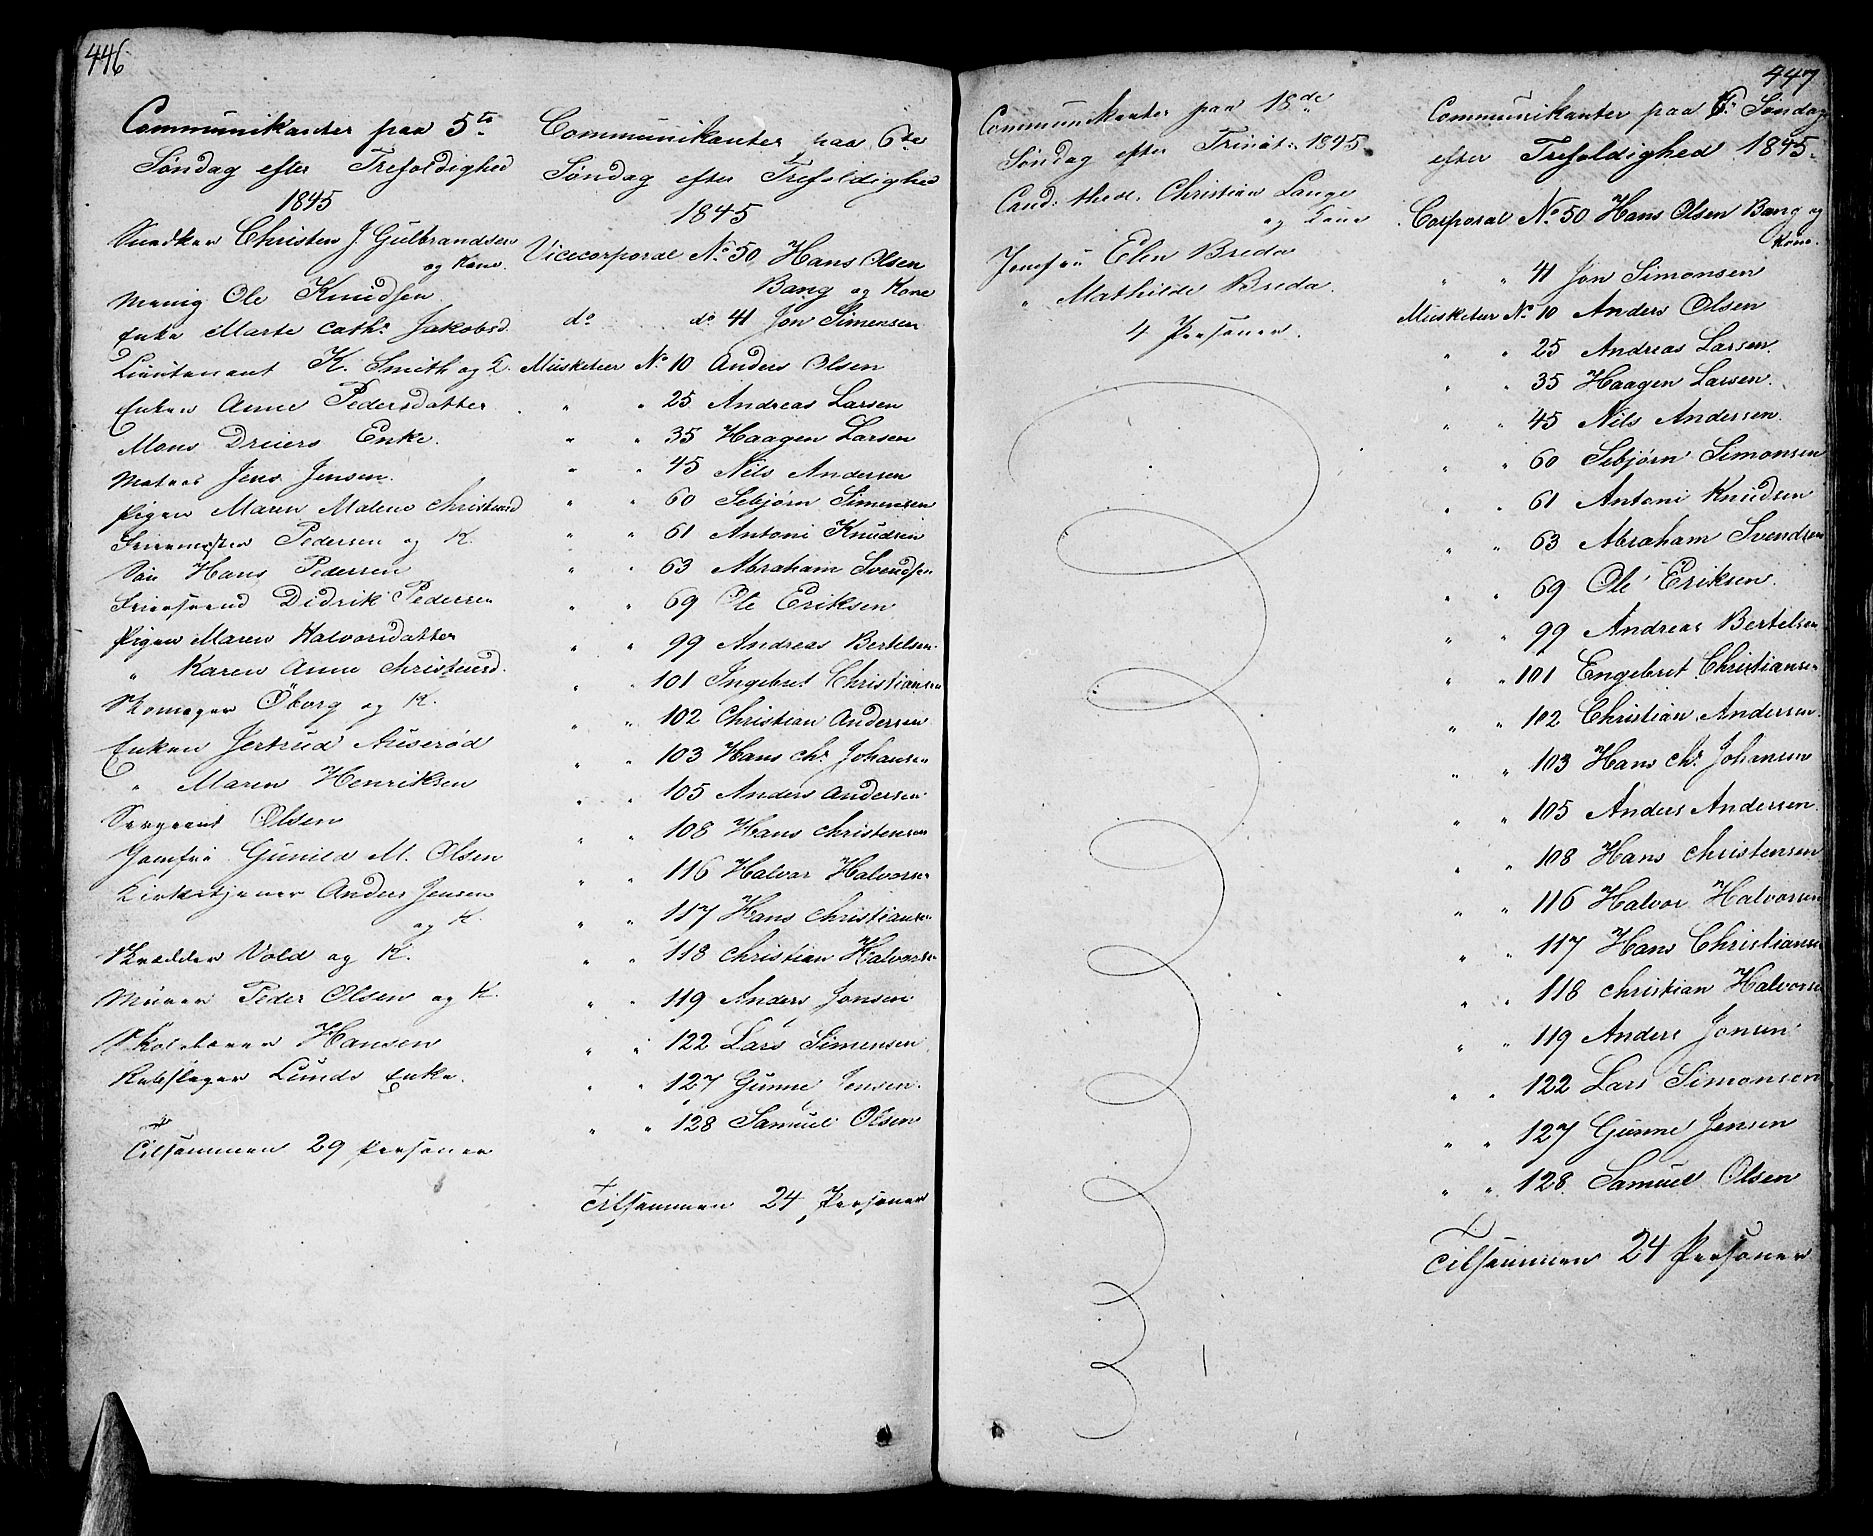 446
Communikanter paa 5te
Søndag efter Trefoldighed
1845
Snedker Christen J Gulbrandsen
og Kone.
Ole Knudsen
Enke Marte Cath: Jakobsd.
Lieutenant K. Smith og
Enken Anne Pedersdatter
Mons Dreiers Enke.
Matros Jens Jensen.
Pigen Maren Malene Christensd
Pedersen og K.
Søn Hans Pedersen
Didrik Pedersen
Pigen Maren Halvorsdatter
" Karen Anne Christensd.
Skomager Öborg og K.
Enken Jertrud
" Maren Henriksen
Sergeant Olsen
Jomfrü Gunild M. Olsen
Kirketjener Anders Jensen
og K.
Skrædder Vold og K.
Mürer Peder Olsen og K.
Hansen
Rebslager Lunds Enke.
Tilsammen 29 Personer
Communikanter paa 6te
Søndag efter Trefoldighed
1845
Vicecorporal No 50, Hans Olsen
Bang og Kone
do do 41 Jon Simensen
Musketeer No 10 Anders Olsen
" " 25 Andreas Larsen
" " 35 Haagen Larsen
" " 45 Nils Andersen
" " 60 Sebjørn Simensen
" " 61 Antoni Knudsen
" " 63 Abraham Svendsen
" " 69 Ole Eriksen
" " 99 Andreas Bertelsen
" " 101 Ingebret Christiansen
" " 102 Christian Andersen
" " 103 Hans Chr. Johansen
" " 105 Anders Andersen
" " 108 Hans Christensen
" " 116 Halvor Halvorsen
" " 117 Hans Christiansen
" " 118 Christian Halvorsen
" " 119 Anders Jonsen
" " 122 Lars Simensen
" " 127 Gunne Jensen.
" " 128 Samuel Olsen
Tilsammen 24 Personer
447
Communikanter paa 18de
Søndag efter Trinit: 1845.
Cand: theol. Christian Lange
og
Jomfrü Elen Breda
" Mathilde Breda.
4 Personer.
Communikanter paa 6. Søndag
efter Trefoldighed 1845.
Corporal No 50 Hans Olsen Bang og
Kone.
" " 41 Jon Simonsen
Musketeer No 10 Anders Olsen
" " 25 Andreas Larsen.
" " 35 Haagen Larsen.
" " 45 Nils Andersen.
" " 60 Sebjørn Simonsen
" " 61 Antoni Knudsen
" " 63 Abraham Svendsen
" " 69 Ole Eriksen.
" " 99 Andreas Bertelsen
" " 101 Engebret Christiansen
" " 102 Christian Andersen.
" " 103 Hans Chr. Johansen
" " 105 Anders Andersen.
" " 108 Hans Christensen
" " 116 Halvor Halvorsen
" " 117 Hans Christiansen
" " 118 Christian Halvorsen
" " 119 Anders Jonsen
" " 122 Lars Simonson
" " 127 Gunne Jensen
" " 128 Samuel Olsen
Tilsammen 24 Personer